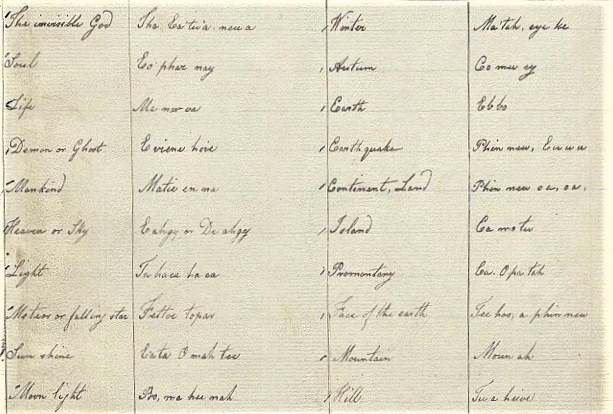 The invisible God The. Ea'tu'a. nu u a Winter Ma'tah, eye ke
Soul Eo' phae nay Autum Co mu ey
Life Me nor oa Earth Ebbo
Demon or Ghost E viene hoie Earthquake Phin nuw, E u u u
Mankind Matie en na Continent, Land Phin nuw oa, oa,
Heaven or Sky Ealygy or De alygy Island Ca mo tu
Light Ta hace ha ea Promontary Ea. O pa tah
Meteor or falling star Fettoe topar Face of the earth Tee hoo, a phin nuw
Sun shine Eata O mah tee Mountain Moun ah
Moon light Bo, ma hee mah Hill Tu a heive